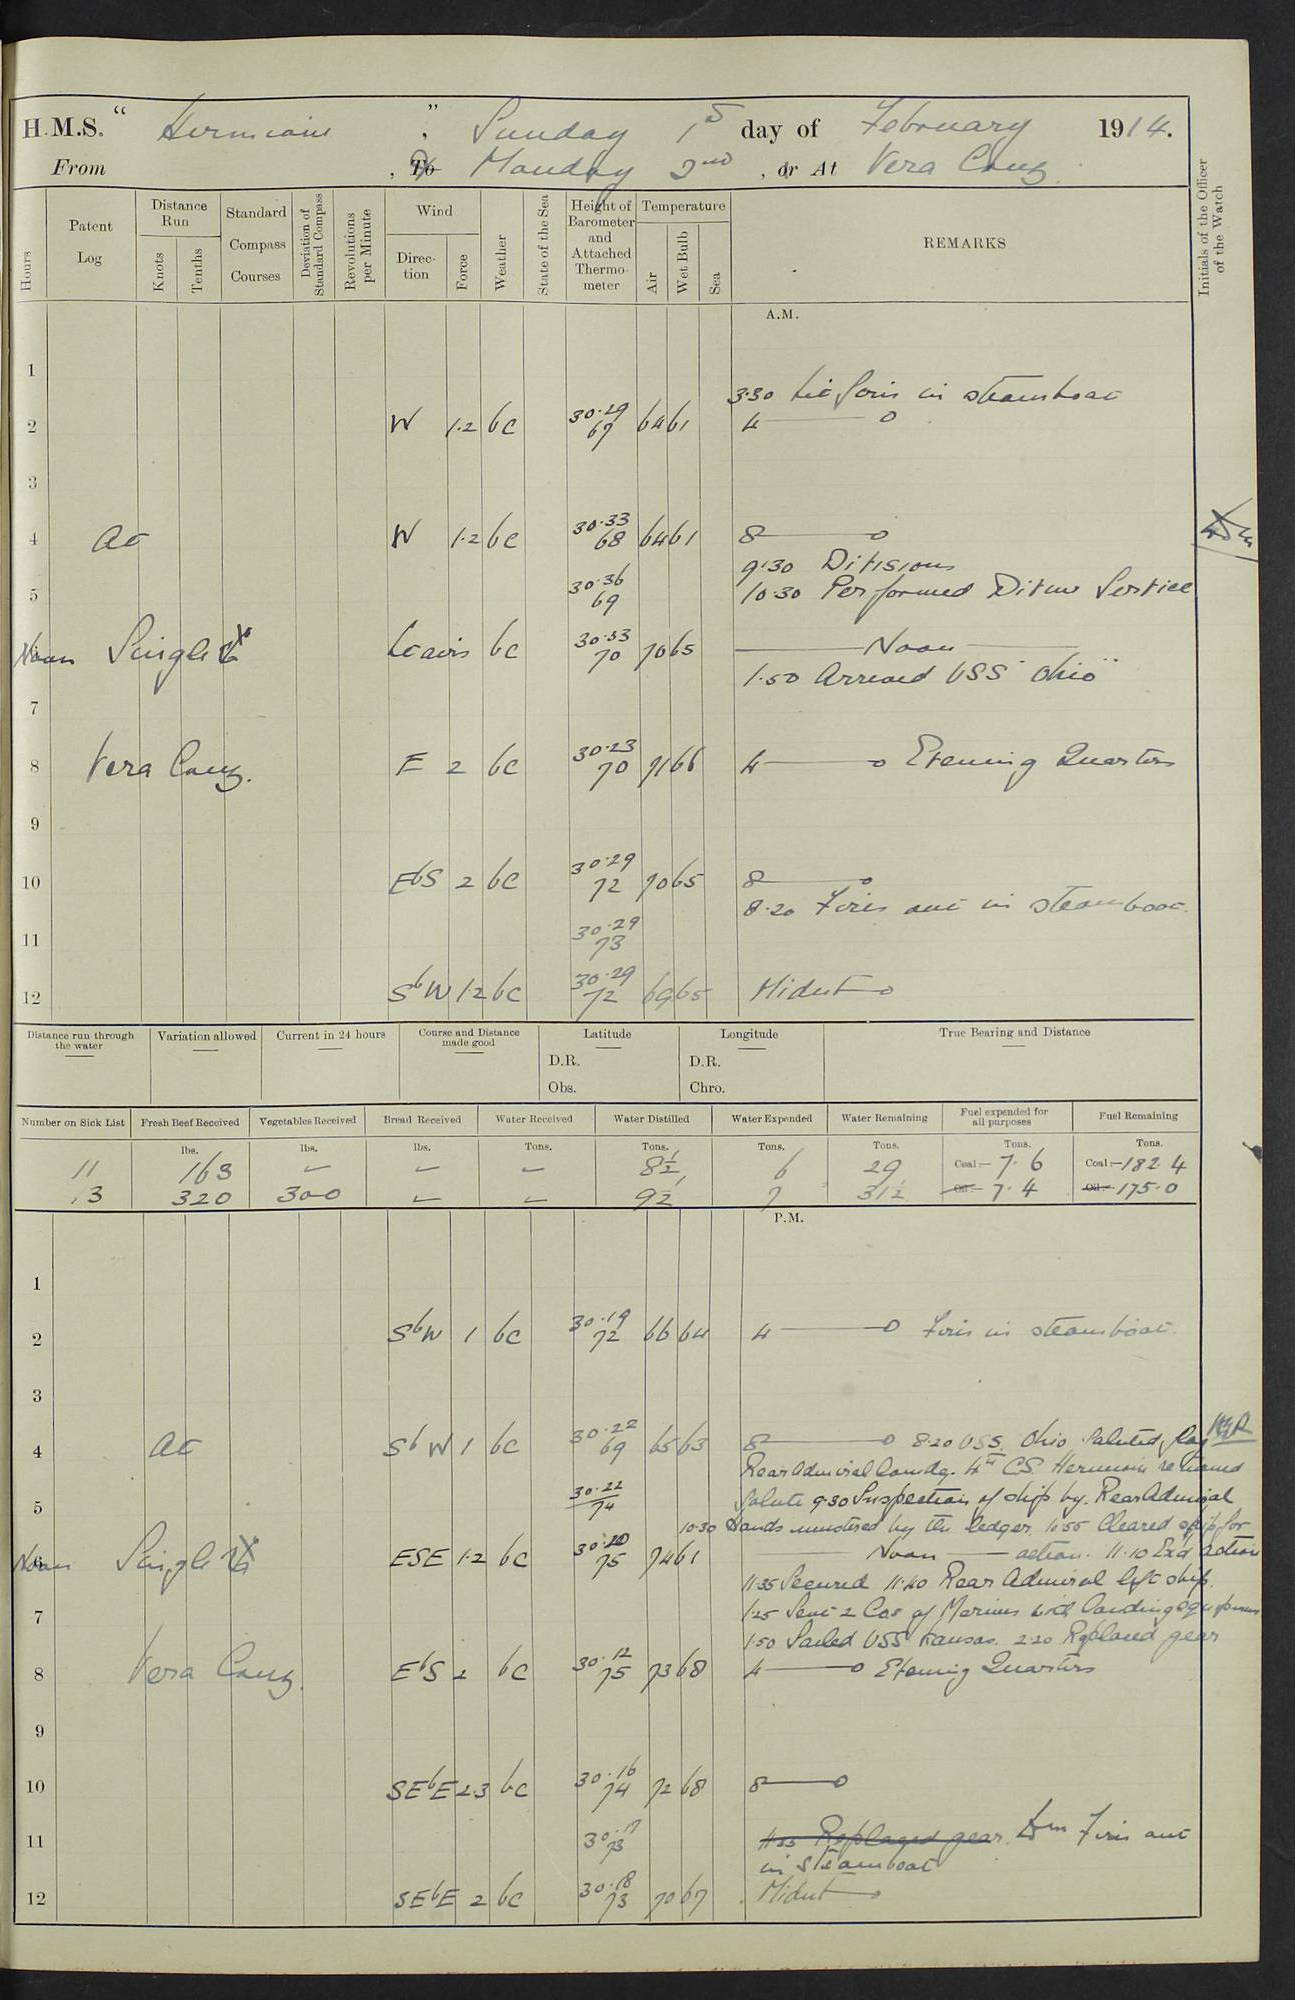 H.M.S. "Hermione", Sunday 1st day of February 1914.
From , To Monday 2nd , or At Vera Cruz.
Hours
Patent Log
Distance Run
Knots
Tenths
Standard Compass Courses
Deviation of Standard Compass
Revolutions per Minute
Wind
Direction
Force
Weather
State of the Sea
Height of Barometer and Attached Thermometer
Temperature
Air
Wet Bulb
Sea
REMARKS
Initials of the Officer of the Watch
A.M.
1
3.30 Lit fires in steamboat
2 W 1.2 bc 30.29 69 64 61 4
3
4 At W 1.2 bc 30.33 68 64 61 8
9.30 Divisions
5 30.36 69 10.30 Performed Divine Service
Noon Single bc 30.33 70 70 65 Noon
1.50 Arrived USS "Ohio"
7
8 Vera Cruz. E 2 bc 30.23 70 71 66 4 Evening Quarters
9
10 EbS 2 bc 30.29 72 70 65 8
8.20 Fires out in steamboat.
11 30.29 73
12 SbW 1.2 bc 30.29 72 69 65 Midnt
Distance run through the water
Variation allowed
Current in 24 hours
Course and Distance made good
Latitude
D.R.
Obs.
Longitude
D.R.
Chro.
True Bearing and Distance
Number on Sick List
Fresh Beef Received
Vegetables Received
Bread Received
Water Received
Water Distilled
Water Expended
Water Remaining
Fuel expended for all purposes
Fuel Remaining
lbs. lbs. lbs. Tons. Tons. Tons. Tons. Tons. Tons.
11 163 – – – 8½ 6 29 Coal:– 7.6 Coal:– 182.4
13 320 300 – – 9½ 7 31½ Oil:– 7.4 Oil:– 175.0
P.M.
1
2 SbW 1 bc 30.19 72 66 64 4 Fires in steamboat.
3
4 At SbW 1 bc 30.22 69 65 63 8 8.20 USS. Ohio saluted flag
Rear Admiral Comdg. 4th C.S. Hermione returned
5 30.22 74 Salute 9.30 Inspection of ship by Rear Admiral
10.30 Hands mustered by the ledger. 10.55 Cleared ship for
Noon Single ESE 1.2 bc 75 74 61 Noon action. 11.10 Exd action
11.35 Secured 11.40 Rear Admiral left ship.
7 1.25 Sent 2 Cos of Marines with landing
1.50 Sailed USS Kansas. 2.20 Replaced gear
8 Vera Cruz. EbS 2 bc 30.12 75 73 68 4 Evening Quarters
9
10 SEbE 2.3 bc 30.16 74 72 68 8
11 30.17 73 11.35 Replaced gear. Fires out
in steamboat
12 SEbE 2 bc 30.18 73 70 67 Midnt